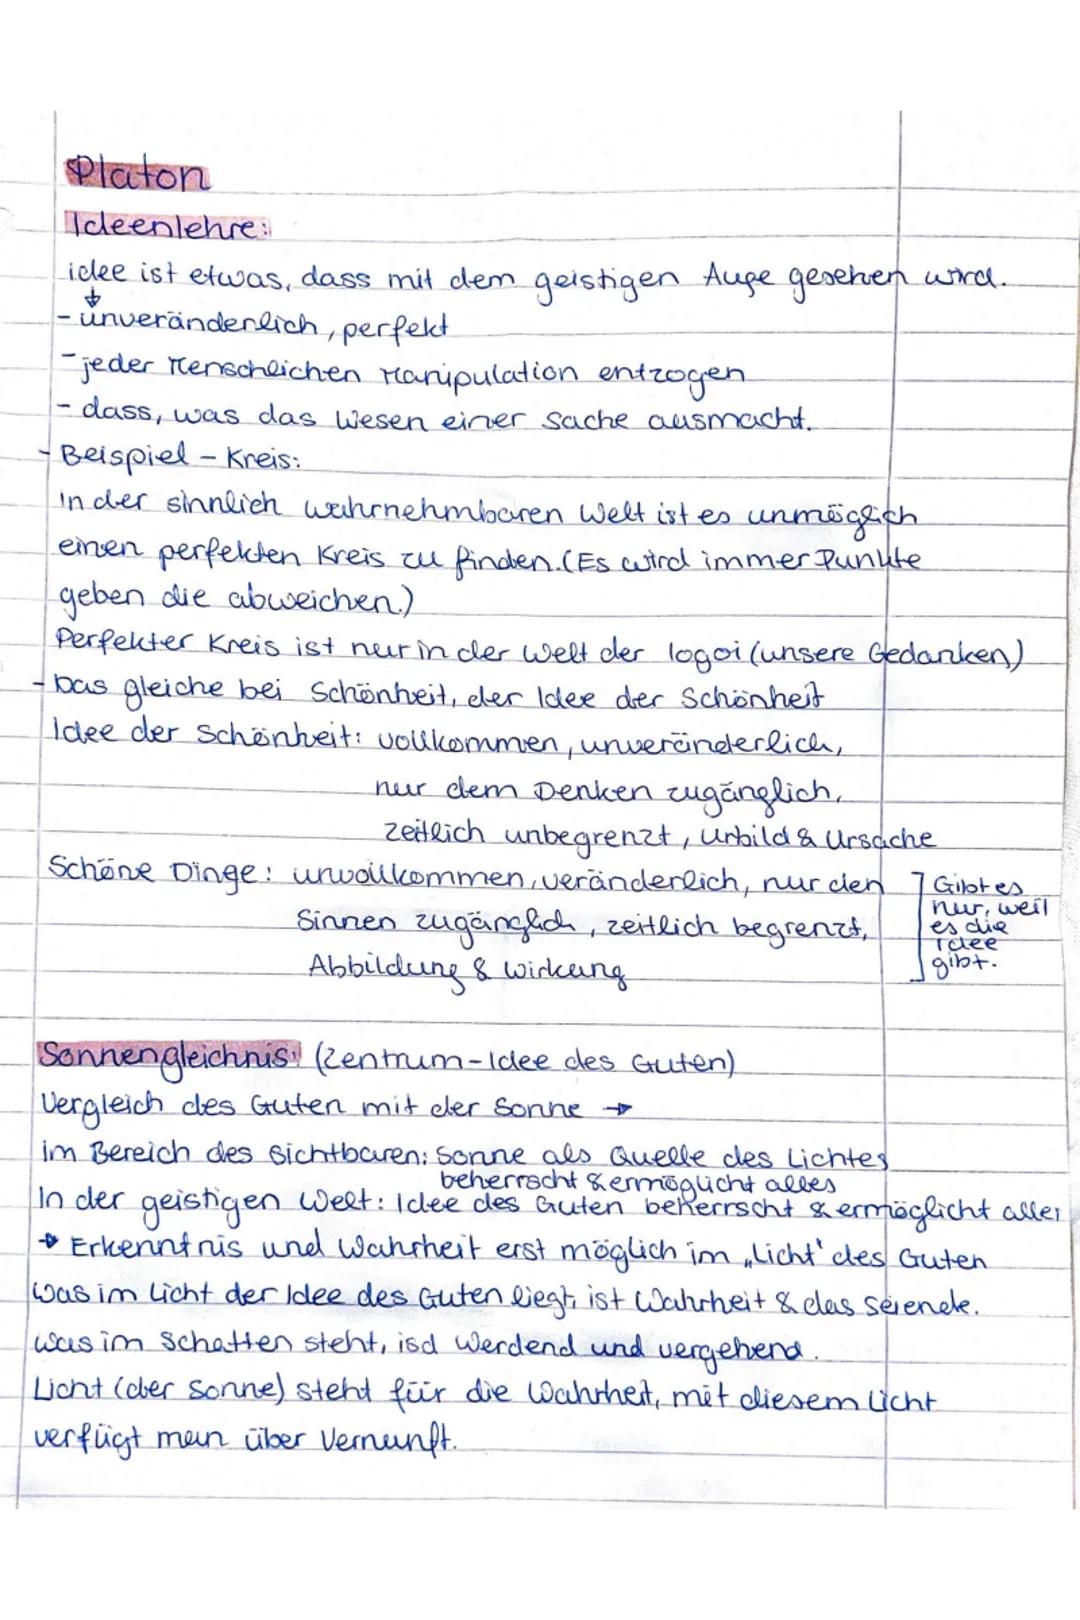 Platon
Ideenlehre:
idee ist etwas, dass mit dem geistigen Auge gesehen wird.
- unveränderlich, perfekt
- jeder Menschlichen Manipulation entzogen
- dass, was das Wesen einer Sache ausmacht.
- Beispiel - Kreis:
In der sinnlich wahrnehmbaren Welt ist es unmöglich
einen perfekten Kreis zu finden. (Es wird immer Punkte
geben die abweichen.)
Perfekter Kreis ist nur in der Welt der logoi (unsere Gedanken)
- Das gleiche bei Schönheit, der Idee der Schönheit
Idee der Schönheit: vollkommen, unveränderlich,
nur dem Denken zugänglich,
zeitlich unbegrenzt, Urbild & Ursache
Schöne Dinge: unvollkommen, veränderlich, nur den
Sinnen zugänglich, zeitlich begrenzt,
Abbildung & wirkung
Gibt es
nur, weil
es die
idee
gibt.
Sonnengleichnis: (Zentrum - Idee des Guten)
Vergleich des Guten mit der Sonne →
im Bereich des Sichtbaren: Sonne als Quelle des Lichtes
beherrscht & ermöglicht alles
In der geistigen Welt: Idee des Guten beherrscht & ermöglicht alles
→ Erkenntnis und Wahrheit erst möglich im „Licht' des Guten
Was im Licht der Idee des Guten liegt, ist Wahrheit & das Seiende.
was im Schatten steht, isd Werdend und vergehend.
Licht (der Sonne) steht für die Wahrheit, mit diesem Licht
verfügt man über Vernunft.